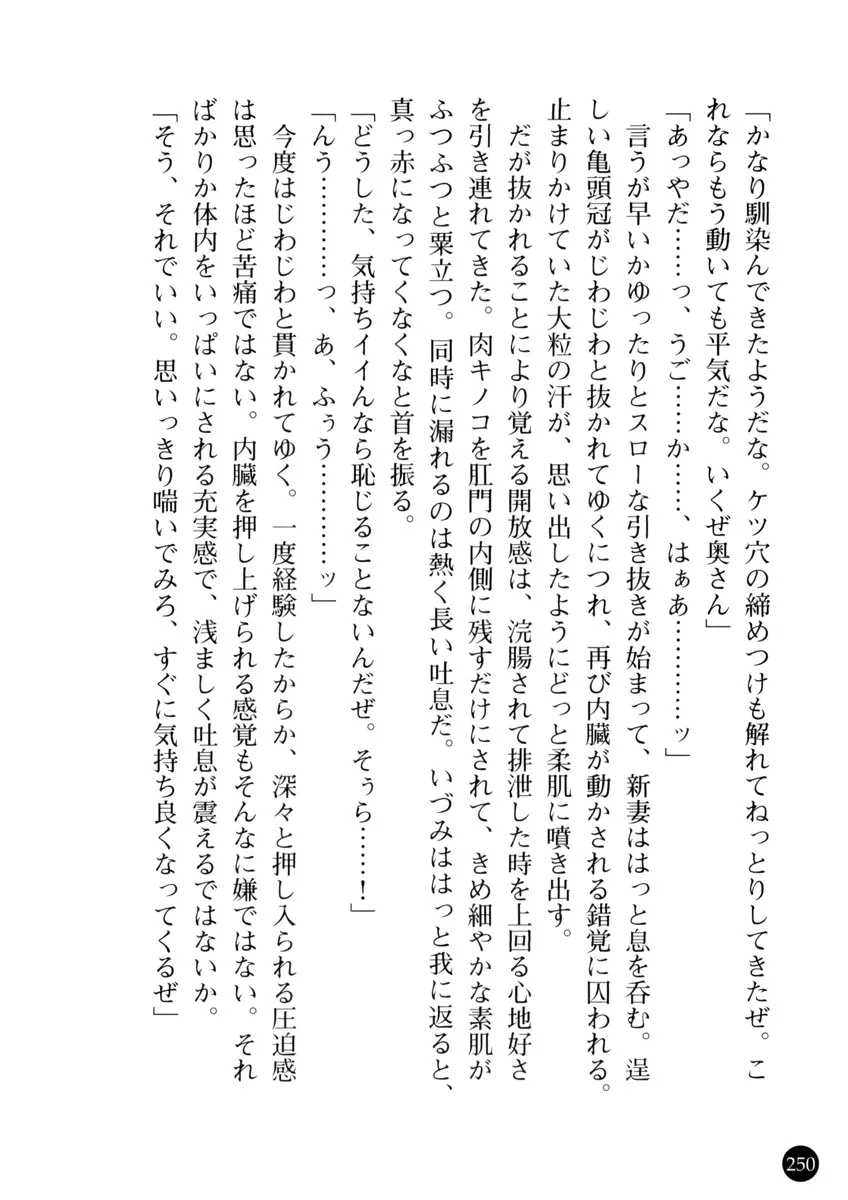 「かなり馴染んできたようだな。ケツ穴の締めつけも解れてねっとりしてきたぜ。こ
れならもう動いても平気だな。いくぜ奥さん」
「あっやだ……っ、うご……か……、はぁあ…………ッ」
言うが早いかゆったりとスローな引き抜きが始まって、新妻ははっと息を呑む。逞
しい亀頭冠がじわじわと抜かれてゆくにつれ、再び内臓が動かされる錯覚に囚われる。
止まりかけていた大粒の汗が、思い出したようにどっと柔肌に噴き出す。
だが抜かれることにより覚える開放感は、浣腸されて排泄した時を上回る心地好さ
を引き連れてきた。肉キノコを肛門の内側に残すだけにされて、きめ細やかな素肌が
ふつふつと粟立つ。同時に漏れるのは熱く長い吐息だ。いづみははっと我に返ると、
真っ赤になってくなくなと首を振る。
「どうした、気持ちイイんなら恥じることないんだぜ。そぅら……！」
「んう…………っ、あ、ふぅう…………ッ」
今度はじわじわと貫かれてゆく。一度経験したからか、深々と押し入られる圧迫感
は思ったほど苦痛ではない。内臓を押し上げられる感覚もそんなに嫌ではない。それ
ばかりか体内をいっぱいにされる充実感で、浅ましく吐息が震えるではないか。
「そう、それでいい。思いっきり喘いでみろ、すぐに気持ち良くなってくるぜ」
250